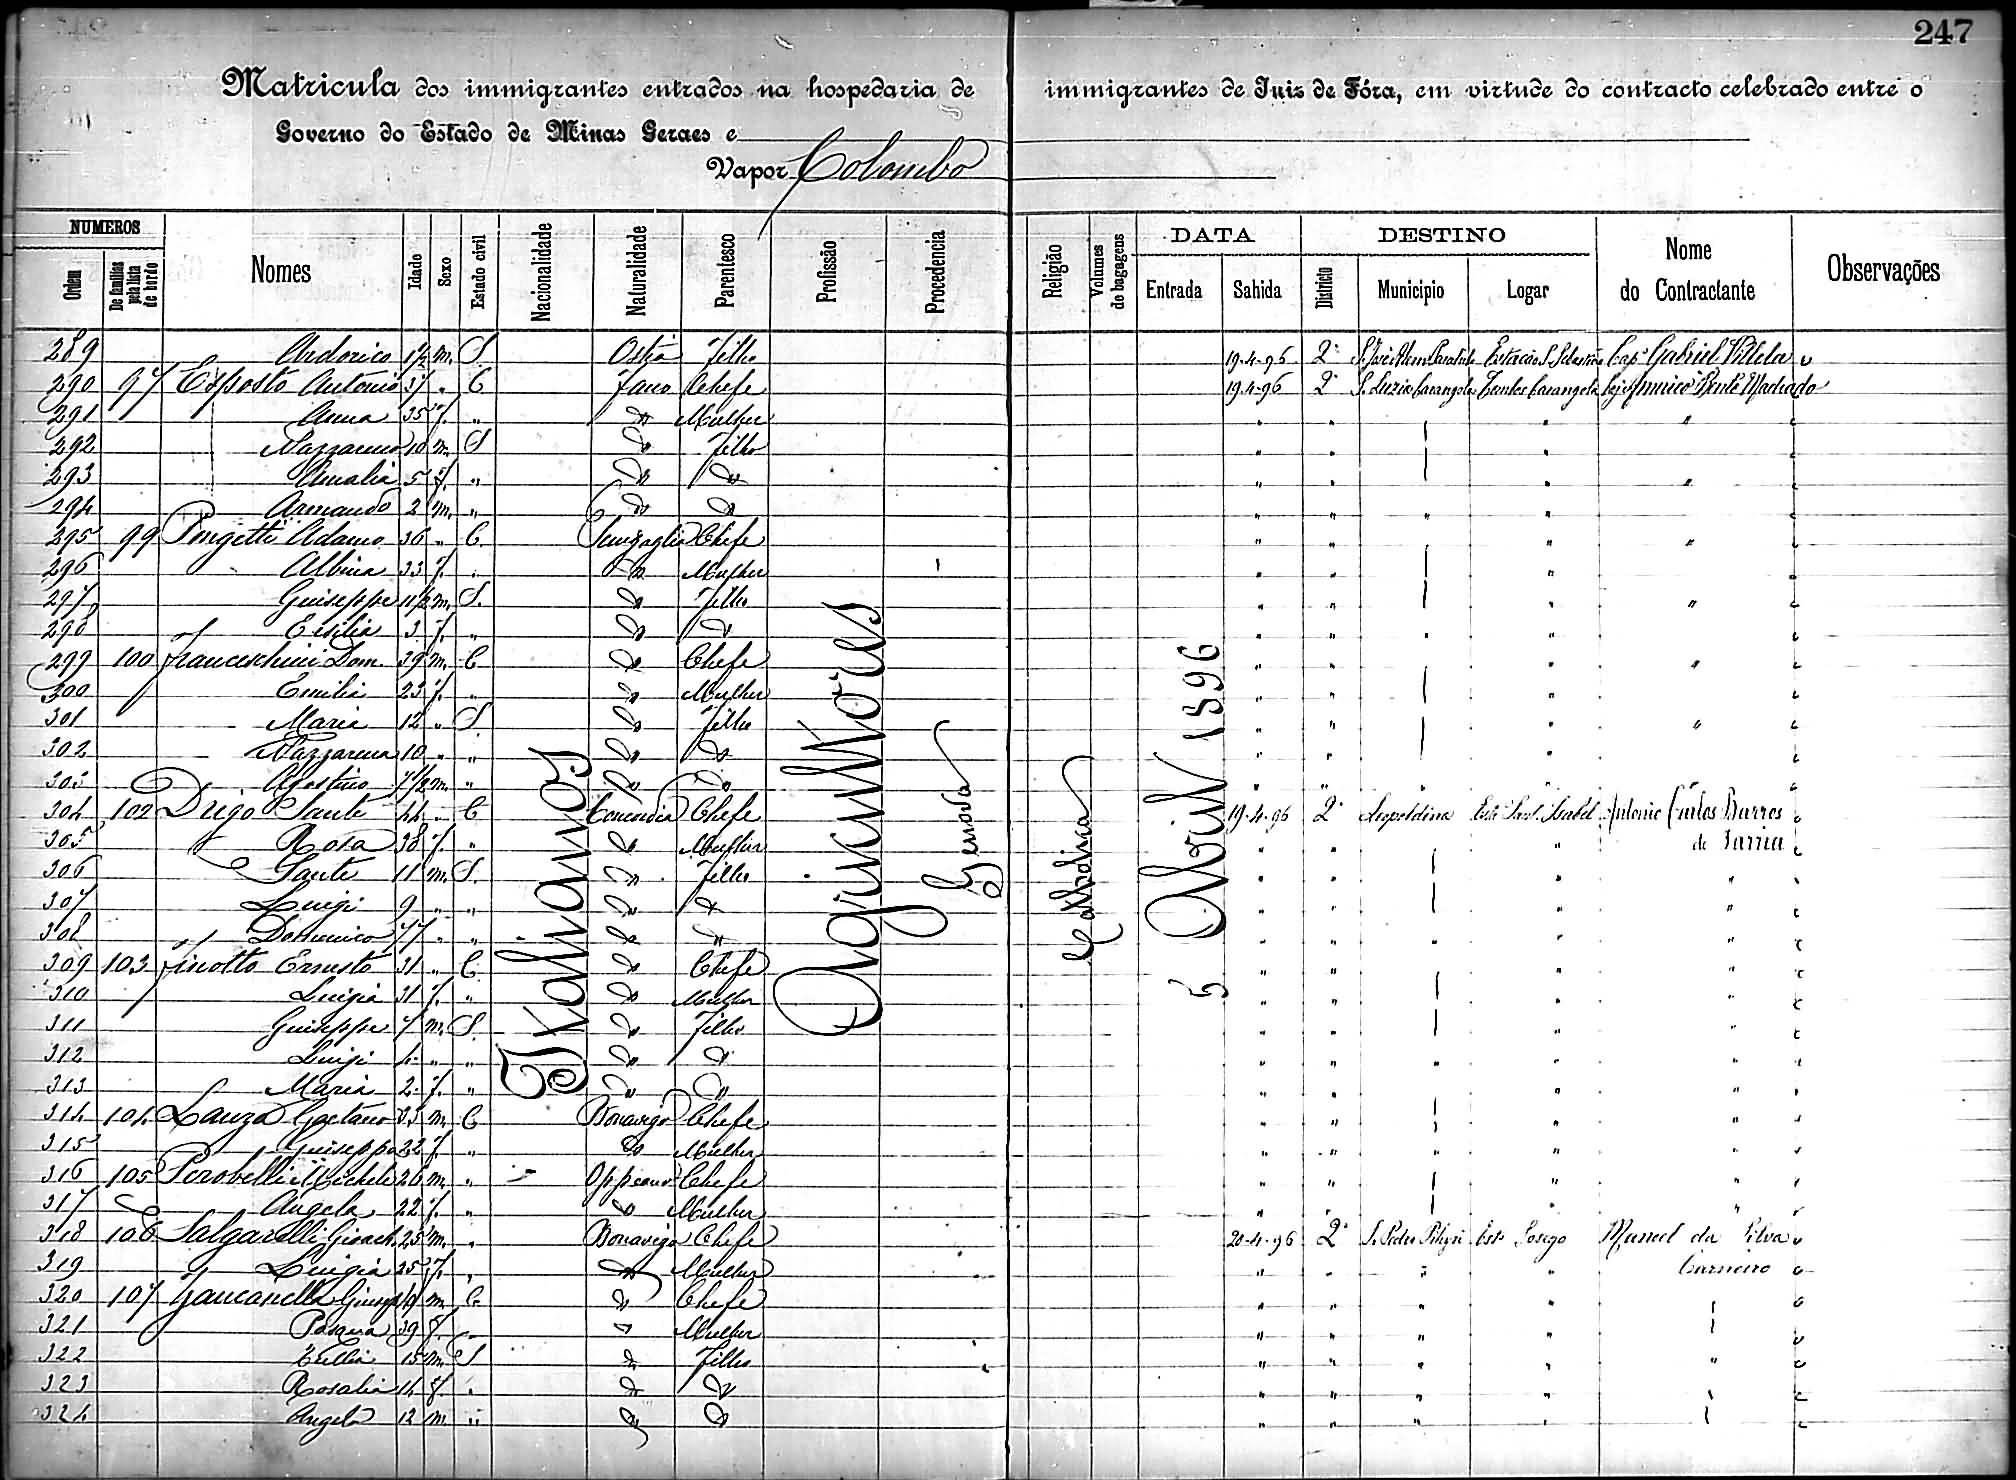 247
Matricula dos immigrantes entrados na hospedaria de immigrantes de Juiz de Fóra, em virtude do contracto celebrado entre o
Governo do Estado de Minas Geraes e
Vapor Colombo
NUMEROS DATA DESTINO
Ordem De familias pela lista de bordo Nomes Idade Sexo Estado civil Nacionalidade Naturalidade Parentesco Profissão Procedencia Religião Volumes de bagagens Entrada Sahida Districto Municipio Logar Nome do Contractante Observações
Italianos Agricultores Genova Catholica 5 Abril 1896
289 Andorico 1 1/2 m. S. Ostra Filho 19-4-96 2º Estação S. Sebastião Capº Gabriel Villela "
290 97 Esposto Antonio 37 " C Fano Chefe 19-4-96 2º S. Luzia Carangola Tombos Carangola Americo Bento Machado
291 Anna 35 f. " Do Mulher " " " "
292 Nazzareno 10 m. S Do Filho " " "
293 Amalia 5 f. " Do Do " " " "
294 Armando 2 m. " Do Do " " " "
295 99 Pongetti Adamo 36 " C. Senigaglia Chefe " " " "
296 Albina 33 f. " Do Mulher " " "
297 Guiseppe 11 1/2 m. S. Do Filho " " " "
298 Ersilia 3 f. " Do Do " " " "
299 100 Franceschini Dom. 39 m. C Do Chefe " " " "
300 Emilia 23 f. " Do Mulher " " "
301 Maria 12 " S Do Filho " " " "
302 Nazzarena 10 " " Do Do " " "
303 Agostino 7 1/2 m. " Do Do " " " "
304 102 Drigo Sante 44 " C Chefe 19-4-96 2º Leopoldina Est. Sant. Isabel Antonio Carlos Barros
305 Rosa 38 f. " Do Mulher " " " de Farria
306 Sante 11 m. S. Do Filho " " " "
307 Luigi 9 " " Do Do " " " "
308 Domenico 77 " " Do " " " " " "
309 103 Finotto Ernesto 31 " C Do Chefe " " " "
310 Luigia 31 f. " Do Mulher " " " "
311 Guiseppe 7 m. S. Do Filho " " " "
312 Luigi 4 " " Do Do " " " " "
313 Maria 2 f. " Do Do " " " " "
314 104 Lanza Gaetano 35 m. C Bonavigo Chefe " " " "
315 Guiseppa 22 f. " Do Mulher " " " " "
316 105 Perobelli Michele 26 m. " Oppeano Chefe " " " "
317 Angela 22 f. " Do Mulher " " " "
318 106 Salgarelli Gioach. 25 m. " Bonavigo Chefe 20-4-96 2º Est. Socego Manoel da Silva
319 Luigia 25 f. " Do Mulher " " " " Carneiro
320 107 m. C Do Chefe " " " "
321 Pasqua 39 f. " Do Mulher " " " "
322 15 m. S Do Filho " " " " "
323 Rosalia 14 f. " Do Do " " " "
324 Angelo 12 m " Do Do " " " "